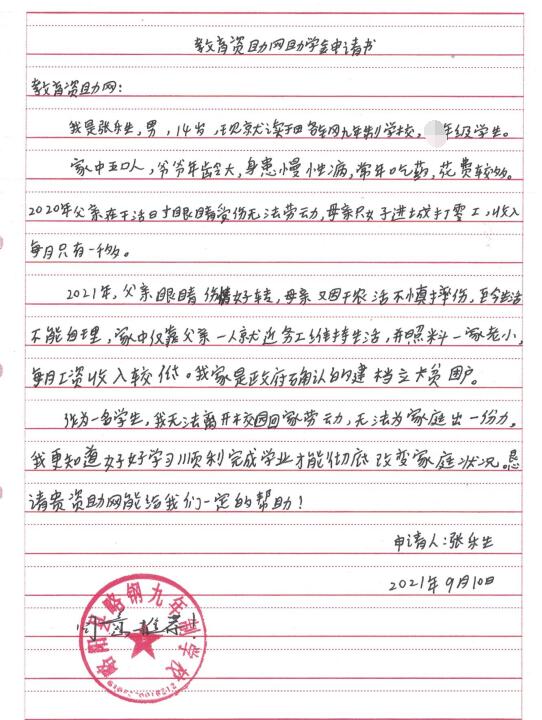 教育资助网助学金申请书
教育资助网：
我是张乐生，男，14岁，现就读于略钢九年制学校，年级学生。
家中五口人，爷爷年龄大，身患慢性病，常年吃药，花费较多。
2020年父亲在干活时眼睛受伤无法劳动，母亲只好进城打零工，收入
每月只有一千多。
2021年，父亲眼睛伤情好转，母亲又因干农活不慎摔伤，至今生活
不能自理，家中仅靠父亲一人就近务工维持生活，并照料一家老小，
每月工资收入较低。我家是政府确认的建档立卡贫困户。
作为一名学生，我无法离开校园回家劳动，无法为家庭出一份力。
我更知道好好学习顺利完成学业才能彻底改变家庭状况。恳
请贵资助网能给我们一定的帮助！
申请人：张乐生
2021年9月10日
同意推荐！
略阳县略钢九年制学校